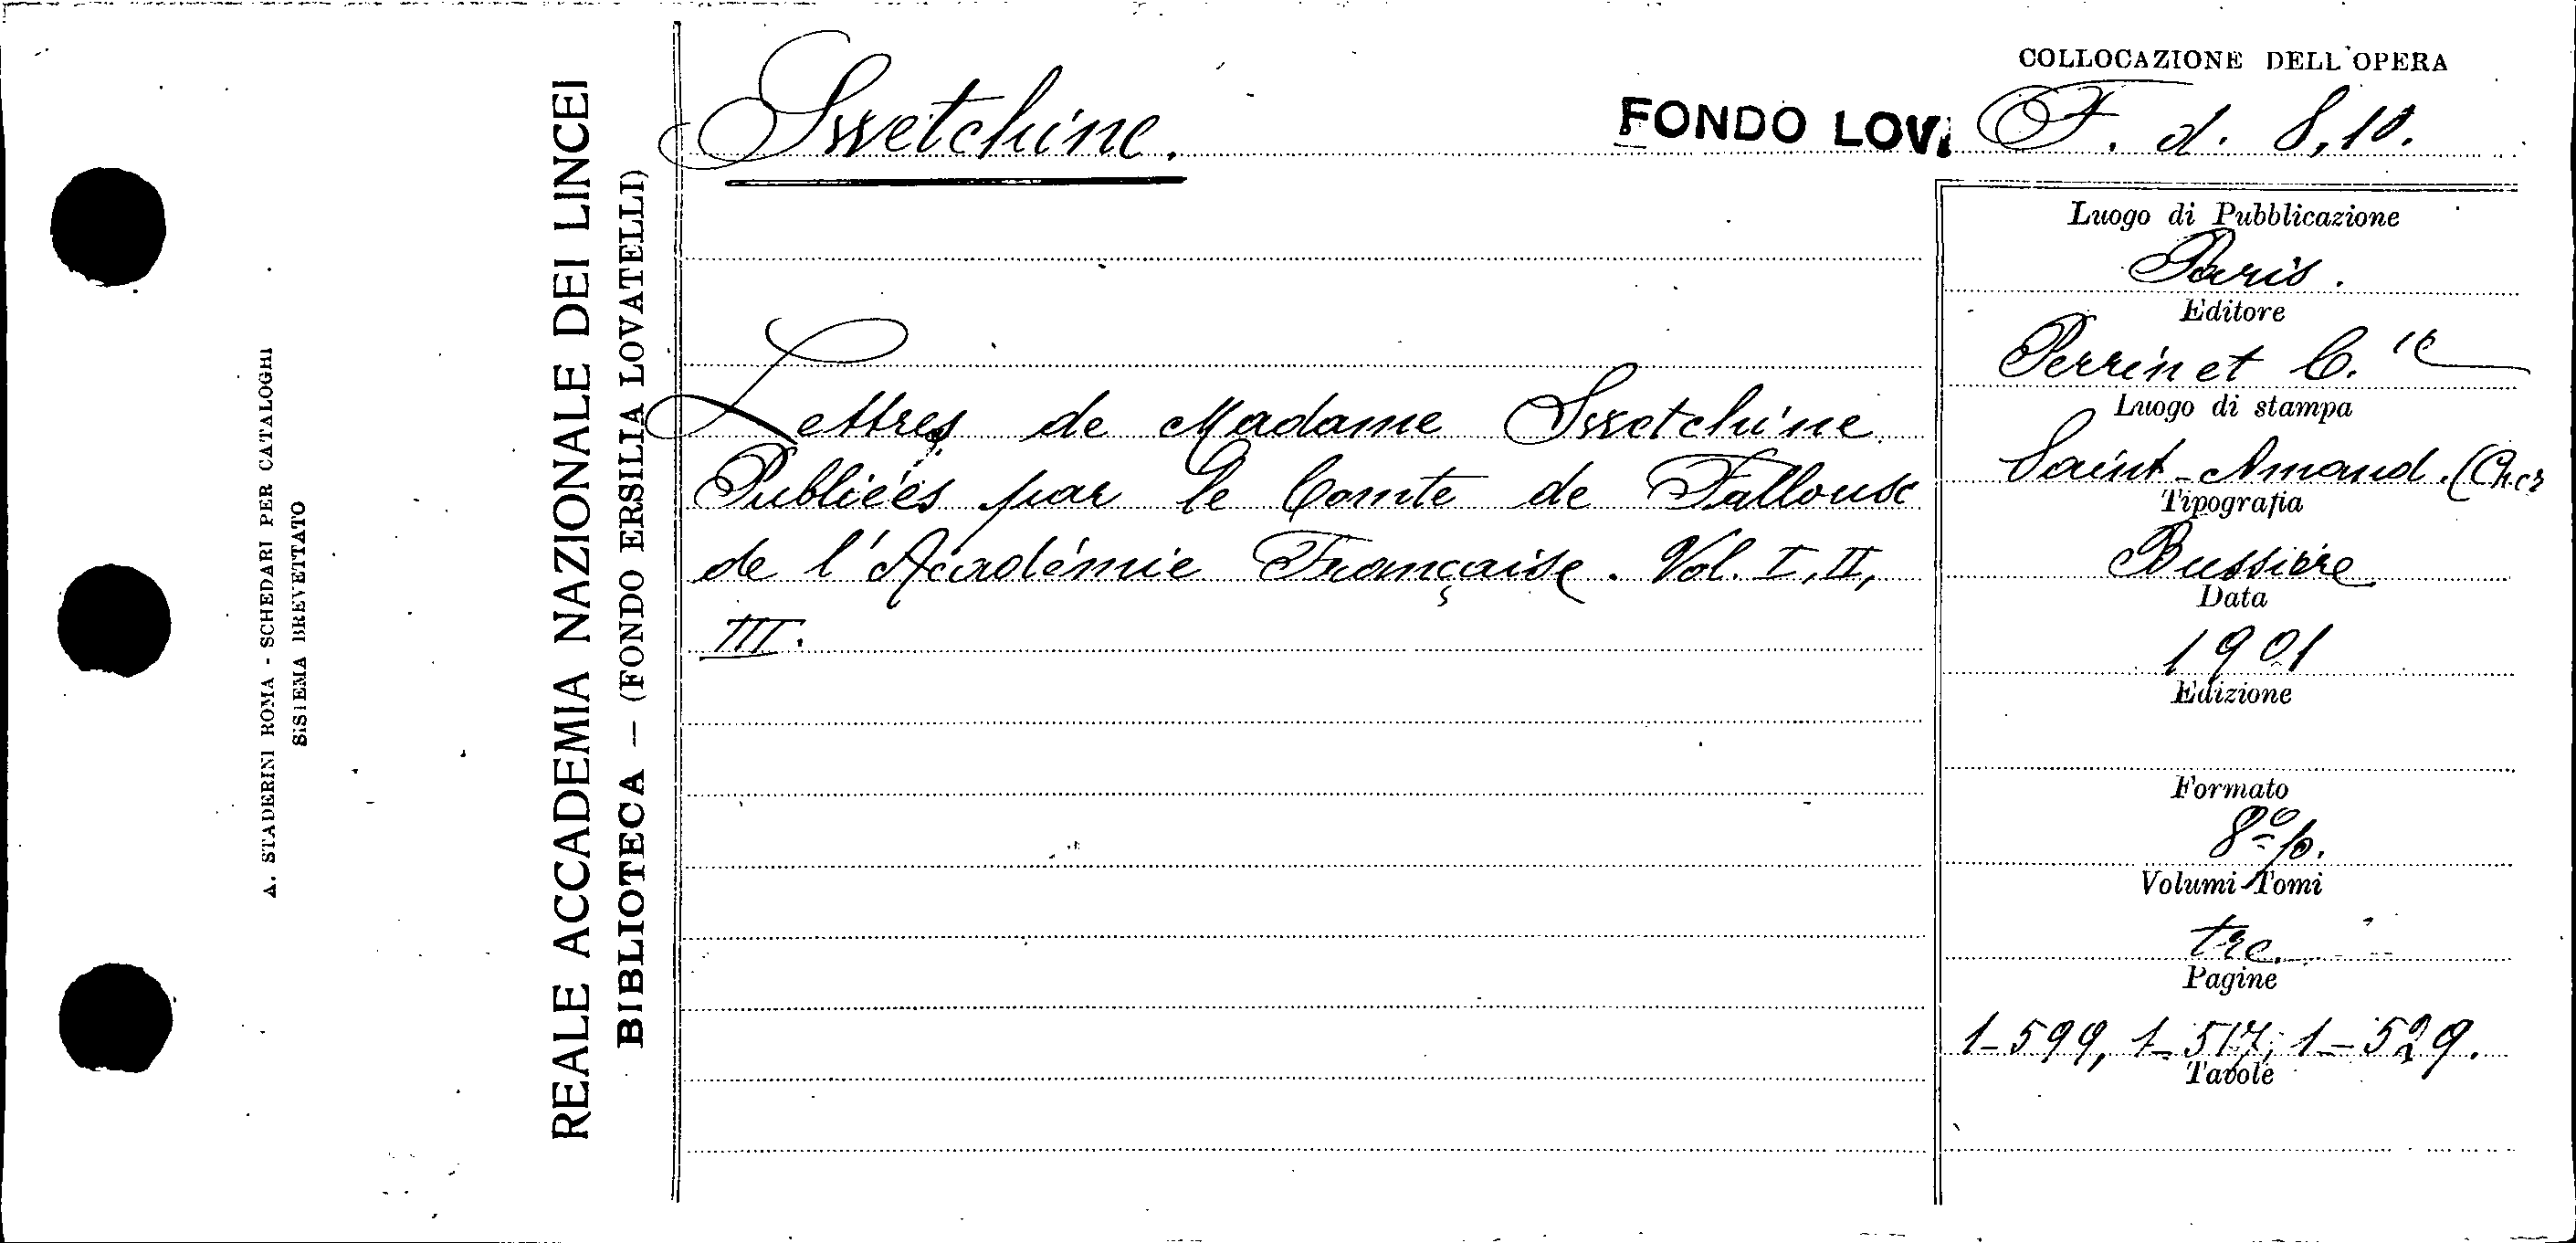 A. STADERINI ROMA - SCHEDARI PER CATALOGHI
SISTEMA BREVETTATO
REALE ACCADEMIA NAZIONALE DEI LINCEI
BIBLIOTECA — (FONDO ERSILIA LOVATELLI)
Swetchine.
FONDO LOV.
COLLOCAZIONE DELL'OPERA
F. d. 8,10.
Lettres de Madame Swetchine
Publiées par le Comte de Falloux
de l'Académie Française. Vol. I, II,
III.
Luogo di Pubblicazione
Paris.
Editore
Perrin et C.ie
Luogo di stampa
Saint-Amand. (Cher
Tipografia
Bussière
Data
1901
Edizione
Formato
8º p.
Volumi-Tomi
tre.
Pagine
1-599, 1-517; 1-529.
Tavole